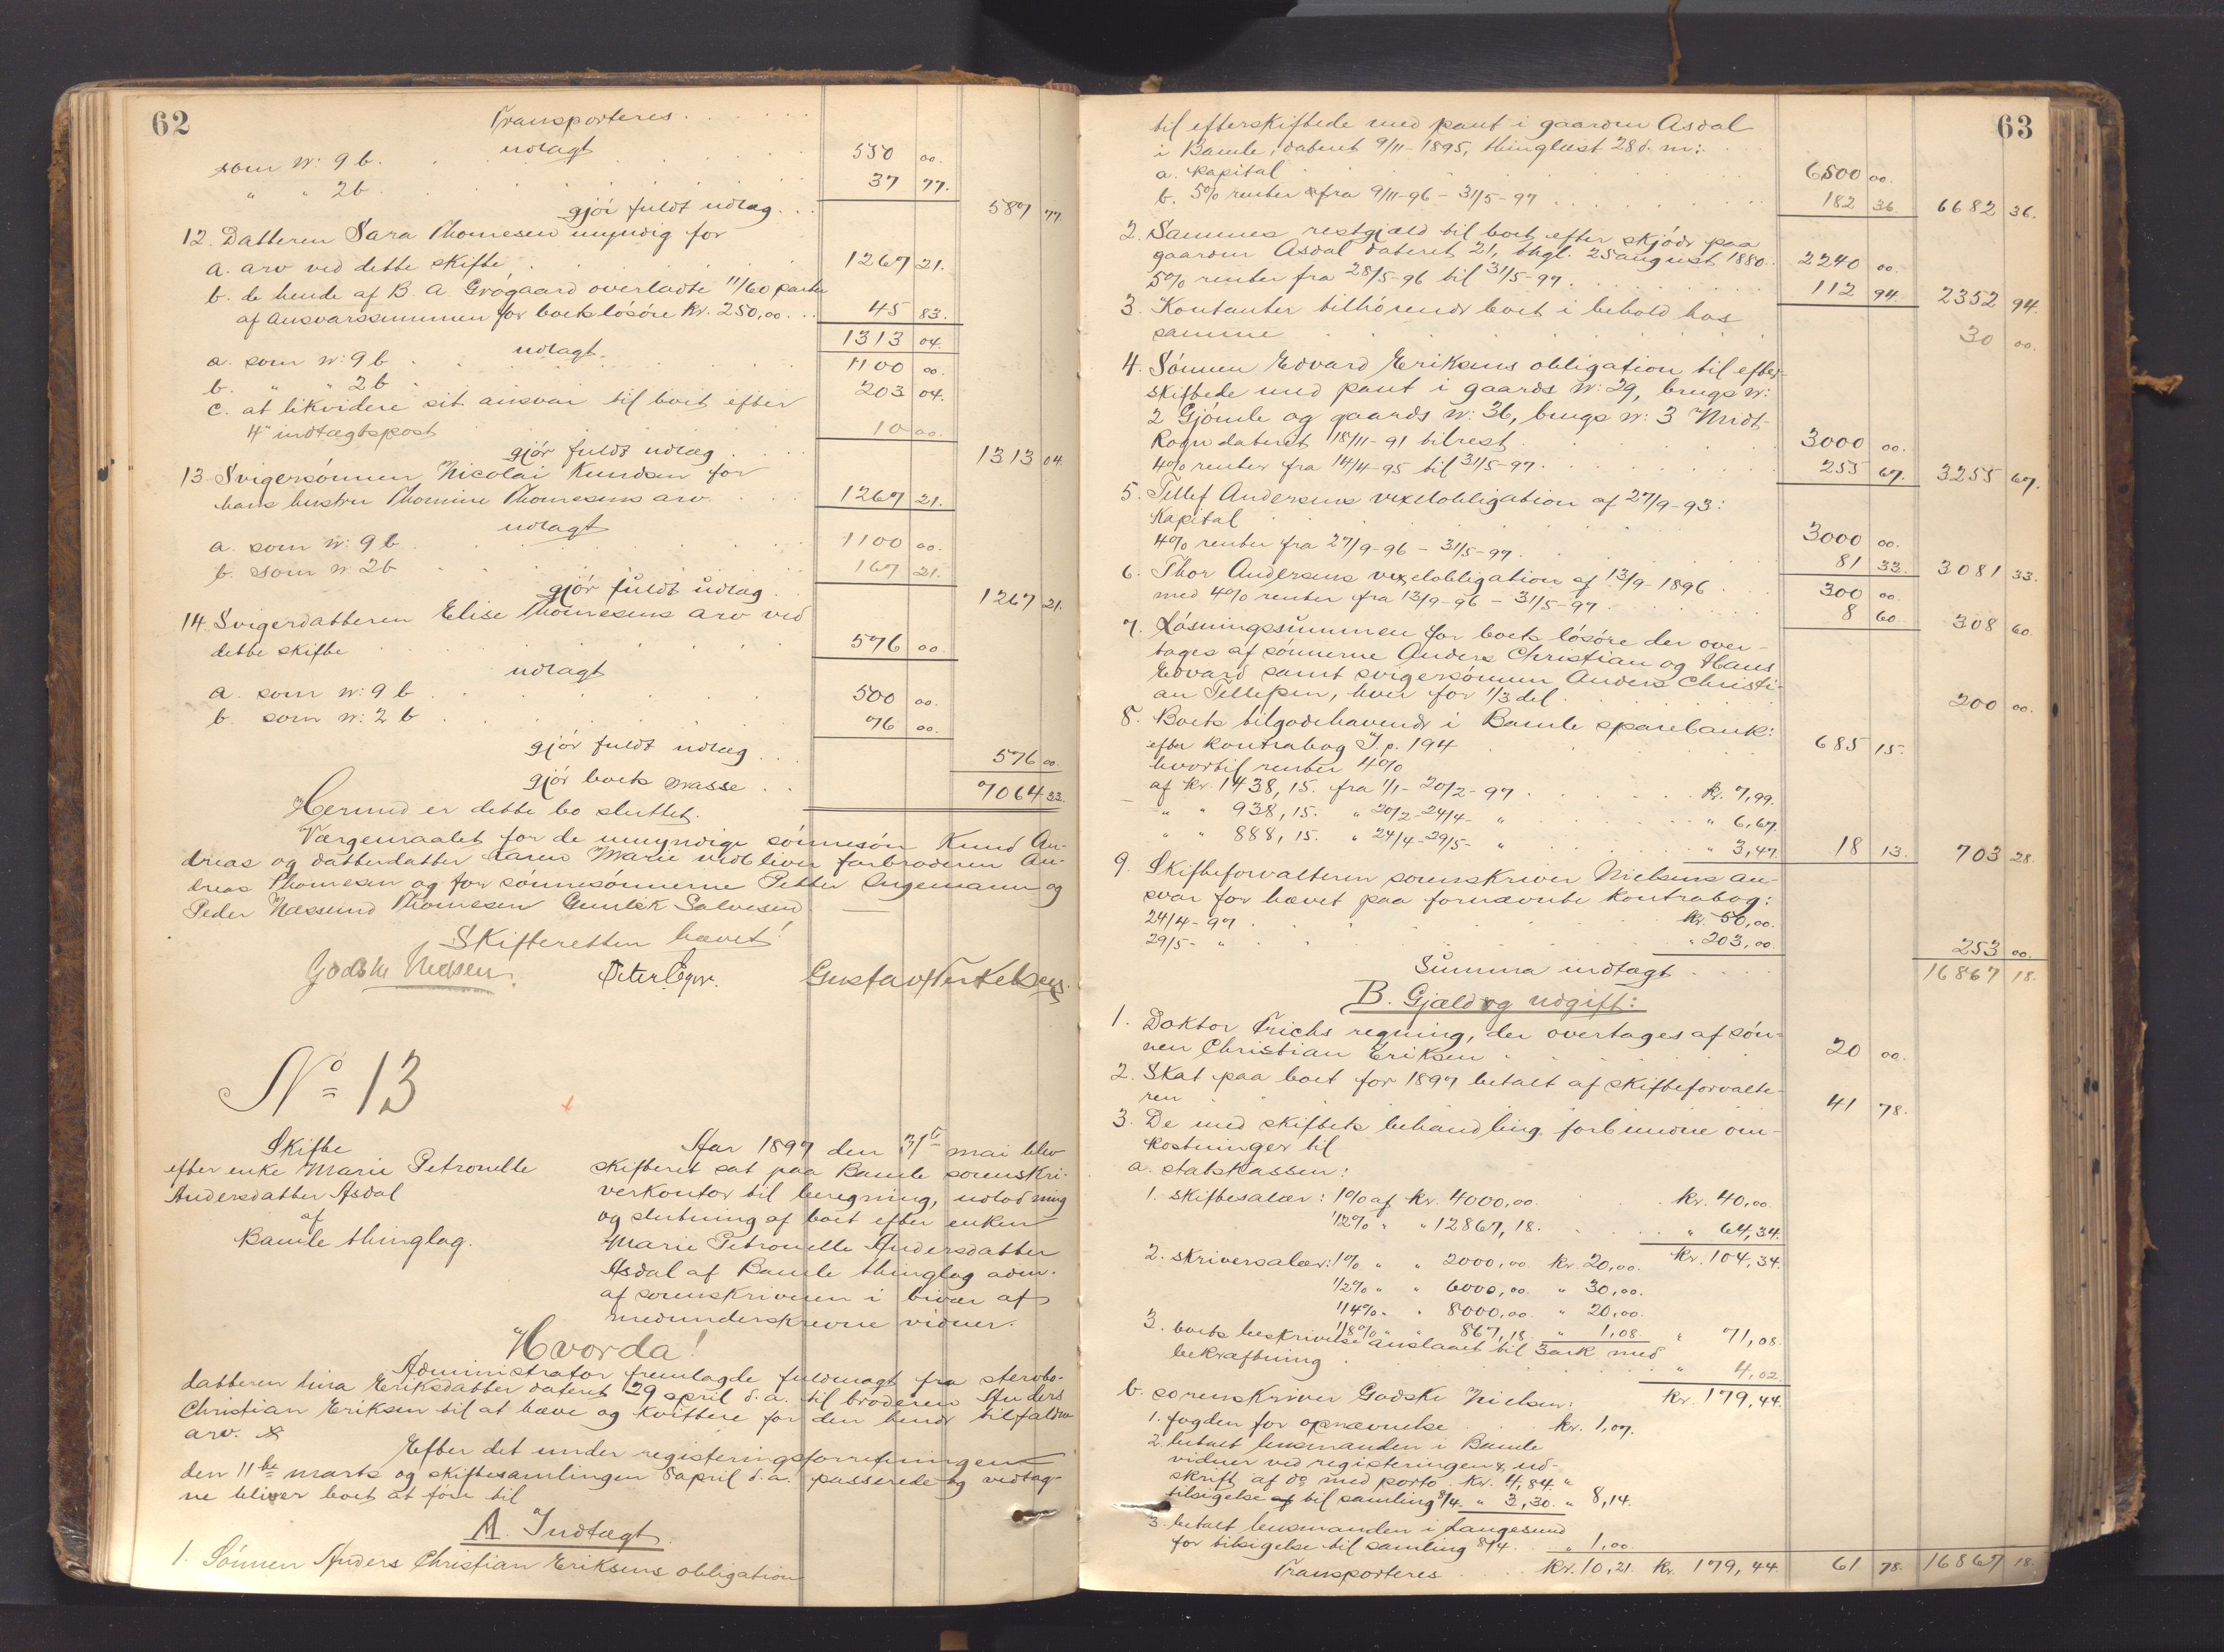 62
Transporteres
udlagt
som N: 9 b. 550 00.
" " 2b 37 77.
gjør fuldt udlæg 587 77.
12. Datteren Sara Thomesen myndig for
a. arv ved dette skifte 1267 21.
b. de hende af B. A. Grøgaard overladte 11/60 parter
af ansvarssummen for boets løsøre kr. 250,00. 45 83.
1313 04.
udlagt
a. som N: 9 b 1100 00.
b. " " 2b 203 04.
c. at likvidere sit ansvar til boet efter
4de indtægtspost 10 00.
gjør fuldt udlæg 1313 04.
13. Svigersønnen Nicolai Knudsen for
hans hustru Thomine Thomesens arv 1267 21.
udlagt
a. som N: 9 b 1100 00.
b. som N: 2b 167 21.
gjør fuldt udlæg 1267 21.
14. Svigerdatteren Elise Thomesens arv ved
dette skifte 576 00.
udlagt
a. som N: 9 b 500 00.
b. som N: 2 b 76 00.
gjør fuldt udlæg 576 00.
gjør boets masse 7064 33.
Hermed er dette bo sluttet.
Værgemaalet for de umyndige sønnesøn Knud An-
dreas og datterdatter Karen Marie vedbliver farbroderen An-
dreas Thomesen og for sønnesønnerne Petter Ingemann og
Peder Næssund Thomesen Gunlek Salvesen —
Skifteretten hævet!
Godske Nielsen. Peter Eger. Gustav Terkelsen.
No 13
Skifte
efter enke Marie Petronelle
Andersdatter Asdal
af
Bamle thinglag.
Aar 1897 den 31te mai blev
skifteret sat paa Bamle sorenskri-
verkontor til beregning, udlodning
og slutning af boet efter enken
Marie Petronelle Andersdatter
Asdal af Bamle thinglag adm.
af sorenskriveren i bivær af
medunderskrevne vidner.
Hvorda!
Administrator fremlagde fuldmagt fra stervbo-
datteren Lina Eriksdatter dateret 29 april d. a. til broderen Anders
Christian Eriksen til at hæve og kvittere for den hende tilfaldne
arv.
Efter det under registeringsforretningen
den 11te marts og skiftesamlingen 8 april d. a. passerede og vedtag-
ne bliver boet at føre til
A. Indtægt.
1. Sønnen Anders Christian Eriksens obligation
63
til efterskiftede med pant i gaarden Asdal
i Bamle, dateret 9/11-1895, thinglæst 28 d. m:
a. Kapital 6500 00.
b. 5% renter fra 9/11-96 - 31/5-97 182 36. 6682 36.
2. Sammes restgjæld til boet efter skjøde paa
gaarden Asdal dateret 21, thgl. 25 august 1880. 2240 00.
5% renter fra 28/5-96 til 31/5-97 112 94. 2352 94.
3. Kontanter tilhørende boet i behold hos
samme 30 00.
4. Sønnen Edvard Eriksens obligation til efter-
skiftede med pant i gaards N: 29, brugs N:
2 Gjømle og gaards N: 36, brugs N: 3 Midt-
Rogn dateret 18/11-91 tilrest 3000 00.
4% renter fra 14/4-95 til 31/5-97 255 67. 3255 67.
5. Tellef Andersens vexelobligation af 27/9-93:
Kapital 3000 00.
4% renter fra 27/9-96 - 31/5-97 81 33. 3081 33.
6. Thor Andersens vexelobligation af 13/9-1896 300 00.
med 4% renter fra 13/9-96 - 31/5-97 8 60. 308 60.
7. Løsningssummen for boets løsøre der over-
tages af sønnerne Anders Christian og Hans
Edvard samt svigersønnen Anders Christi-
an Tellefsen, hver for 1/3 del 200 00.
8. Boets tilgodehavende i Bamle sparebank:
efter kontrabog I. p. 194 685 15.
hvortil renter 4%
af kr. 1438,15. fra 1/1-20/2-97 kr. 7,99.
" " 938,15. " 20/2-24/4- " " 6,67.
" " 888,15. " 24/4-29/5- " " 3,47. 18 13. 703 28.
9. Skifteforvalteren sorenskriver Nielsens an-
svar for hævet paa fornævnte kontrabog:
24/4-97 kr. 50,00.
29/5- " " 203,00. 253 00.
Summa indtægt 16867 18.
B. Gjæld og udgift:
1. Doktor Frichs regning, der overtages af søn-
nen Christian Eriksen 20 00.
2. Skat paa boet for 1897 betalt af skifteforvalte-
ren 41 78.
3. De med skiftets behandling forbundne om-
kostninger til
a. statskassen:
1. skiftesalær: 1% af kr. 4000,00. kr. 40,00.
1/2% " " 12867,18. " 64,34.
kr. 104,34.
2. skriversalær: 1% " " 2000,00. kr. 20,00.
1/2% " " 6000,00. " 30,00.
1/4% " " 8000,00. " 20,00.
1/8% " " 867,18. " 1,08. " 71,08.
3. boets beskrivelse anslaaet til 3 ark med
bekræftning " 4,02.
kr. 179,44.
b. sorenskriver Godske Nielsen:
1. fogden for opnævnelse kr. 1,07.
2. betalt lensmanden i Bamle
vidner ved registeringen & ud-
skrift af do med porto kr. 4,84. "
tilsigelse til samling 8/4. " 3,30. " 8,14.
3. betalt lensmanden i Langesund
for tilsigelse til samling 8/4. " 1,00.
Transporteres kr. 10,21. kr. 179,44. 61 78. 16867 18.